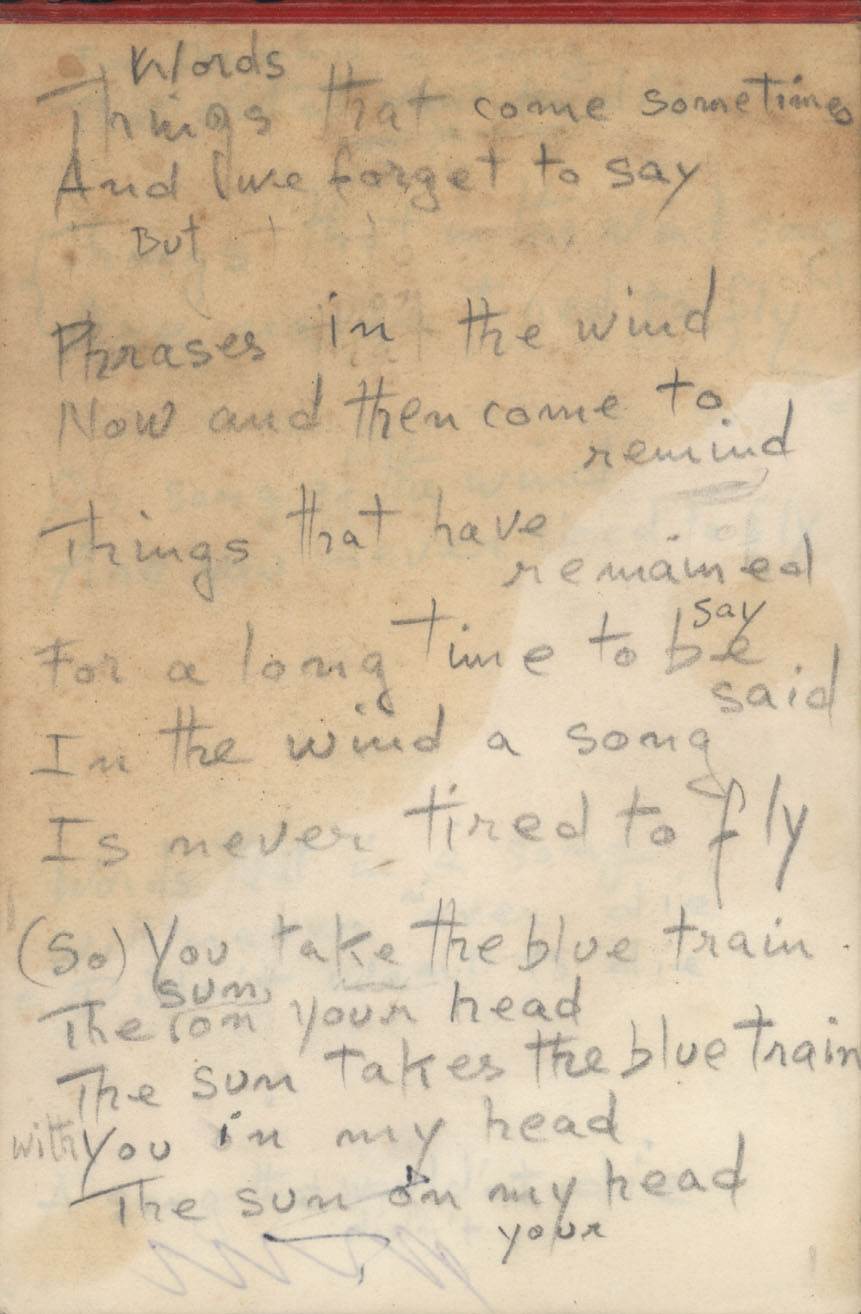 Words
Things that come sometimes
And we forget to say
But
Phrases in the wind
Now and then come to
remind
Things that have
remained
For a long time to be
say
said
In the wind a song
Is never tired to fly
(So) You take the blue train
sun
The (on your head
The sun takes the blue train
with You in my head
The sun on my head
your